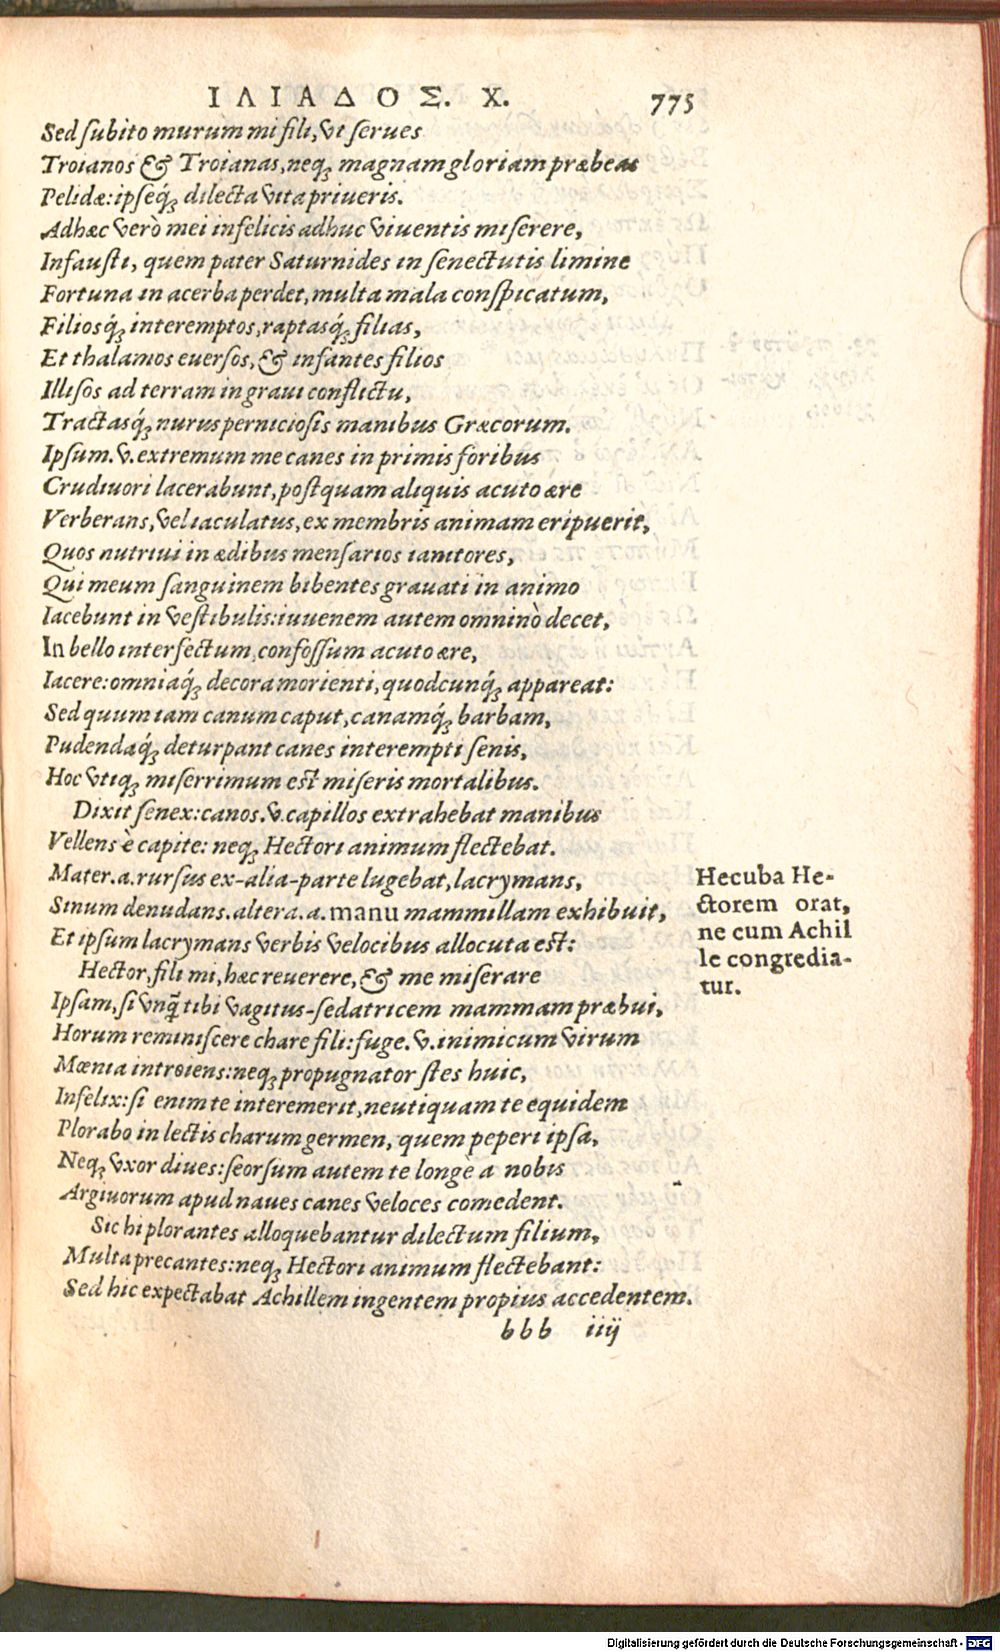 ΙΛΙΑΔΟΣ. Χ. 775
Sed subito murum mi fili, vt serues
Troianos & Troianas, neq; magnam gloriam præbeas
Pelidæ: ipseq́; dilecta vita priueris.
Adhæc verò mei infelicis adhuc viuentis miserere,
Infausti, quem pater Saturnides in senectutis limine
Fortuna in acerba perdet, multa mala conspicatum,
Filiosq́; interemptos, raptasq́; filias,
Et thalamos euersos, & infantes filios
Illisos ad terram in graui conflictu,
Tractasq́; nurus perniciosis manibus Græcorum.
Ipsum.v. extremum me canes in primis foribus
Crudiuori lacerabunt, postquam aliquis acuto ære
Verberans, vel iaculatus, ex membris animam eripuerit,
Quos nutriui in ædibus mensarios ianitores,
Qui meum sanguinem bibentes grauati in animo
Iacebunt in vestibulis: iuuenem autem omninò decet,
In bello intersectum, confossum acuto ære,
Iacere: omniaq́; decora morienti, quodcunq́; appareat:
Sed quum iam canum caput, canamq́; barbam,
Pudendaq́; deturpant canes interempti senis,
Hoc vtiq; miserrimum est miseris mortalibus.
Dixit senex: canos.v. capillos extrahebat manibus
Vellens è capite: neq; Hectori animum flectebat.
Mater.a. rursus ex-alia-parte lugebat, lacrymans,
Sinum denudans. altera.a. manu mammillam exhibuit,
Et ipsum lacrymans verbis velocibus allocuta est:
Hector, fili mi, hæc reuerere, & me miserare
Ipsam, si vnq̃ tibi vagitus-sedatricem mammam præbui,
Horum reminiscere chare fili: fuge.v. inimicum virum
Mœnia introiens: neq; propugnator stes huic,
Infelix: si enim te interemerit, neutiquam te equidem
Plorabo in lectis charum germen, quem peperi ipsa,
Neq; vxor diues: seorsum autem te longè a nobis
Argiuorum apud naues canes veloces comedent.
Sic hi plorantes alloquebantur dilectum filium,
Multa precantes: neq; Hectori animum flectebant:
Sed hic expectabat Achillem ingentem propius accedentem.
bbb iiij
Hecuba He-
ctorem orat,
ne cum Achil
le congredia-
tur.
Digitalisierung gefördert durch die Deutsche Forschungsgemeinschaft - DFG